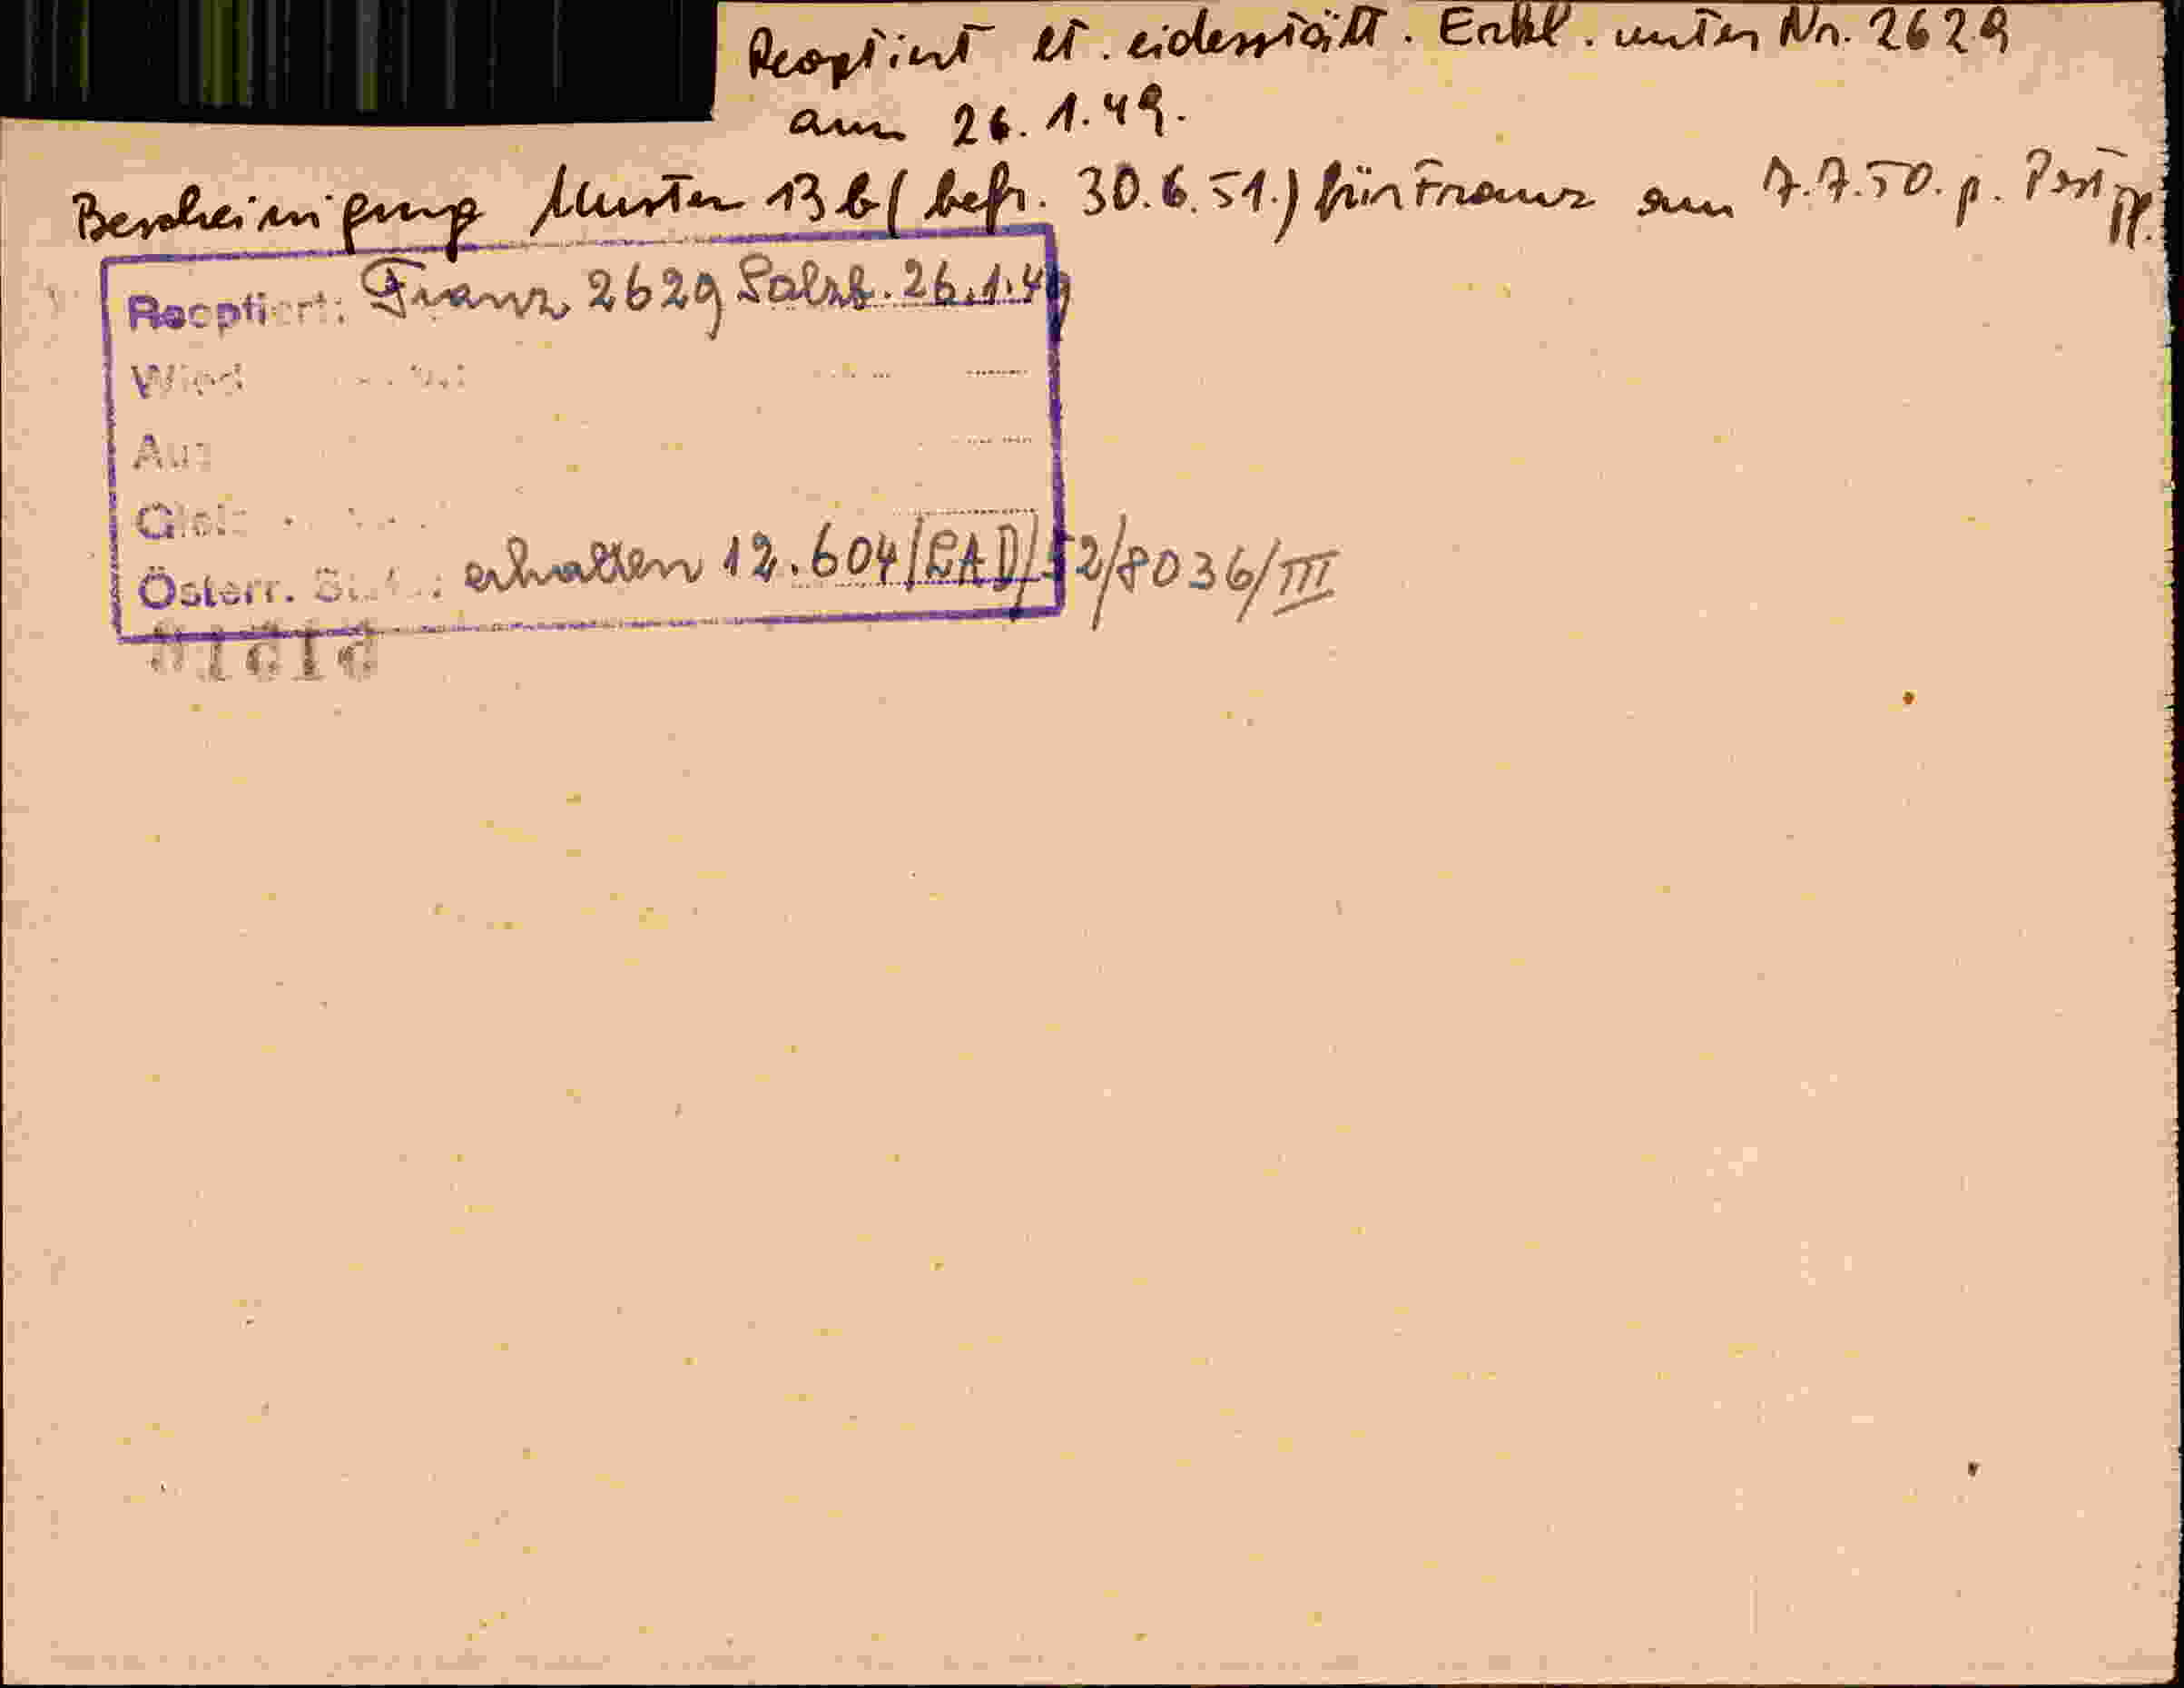 Reoptiert lt. eidesstätt. Erkl. unter Nr. 2629
am 26.1.49.
Bescheinigung Muster 13b (befr. 30.6.51.) für Franz am 7.7.50. p. Post
Reoptiert: Franz 2629 Salzb. 26.1.49
Österr. erhalten 12.604/CAD/52/8036/III